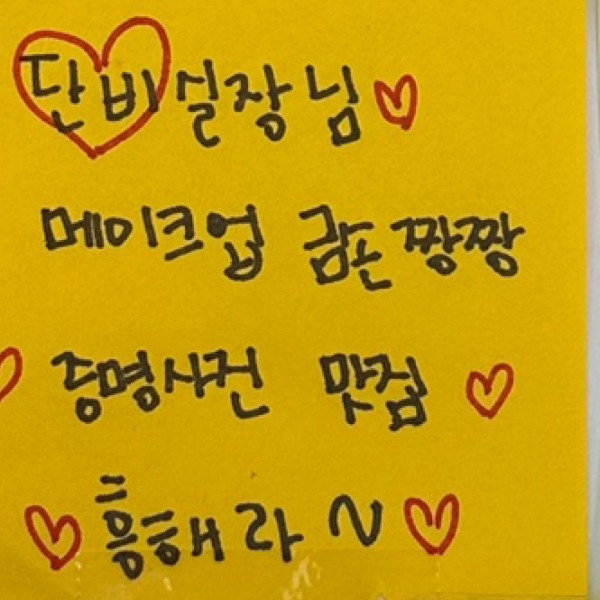 단비실장님
메이크업 금손짱짱
증명사진 맛집
흥해라~